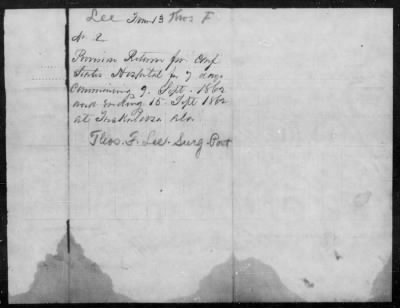 Lee Thos F
No 2
Provision Return for Conf
States Hospital for 7 days
Commencing 9. Sept. 1862
and ending 15 Sept 1862
at Tuskaloosa Ala
Thos. F. Lee. Surg Post